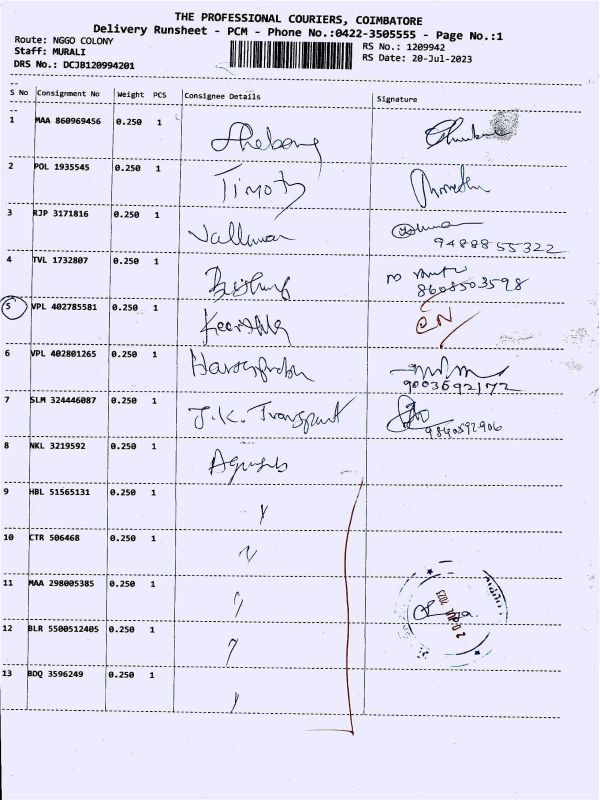 THE PROFESSIONAL COURIERS, COIMBATORE
Delivery Runsheet - PCM - Phone No.:0422-3505555 - Page No.:1
Route: NGGO COLONY
RS No.: 1209942
Staff: MURALI
RS Date: 20-Jul-2023
DRS No.: DCJB120994201
S No Consignment No Weight PCS Consignee Details Signature
1 MAA 860969456 0.250 1
2 POL 1935545 0.250 1 Timoty
3 RJP 3171816 0.250 1
9488855322
4 TVL 1732807 0.250 1
8608503598
5 VPL 402785581 0.250 1
6 VPL 402801265 0.250 1
9003692172
7 SLM 324446087 0.250 1 J.K. Transport
9840592906
8 NKL 3219592 0.250 1
9 HBL 51565131 0.250 1
10 CTR 506468 0.250 1
11 MAA 298005385 0.250 1
12 BLR 5500512405 0.250 1
13 BDQ 3596249 0.250 1